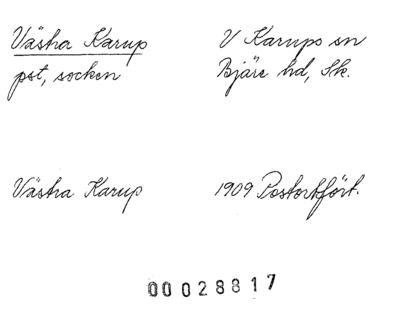 Västra Karup
V Karups sn
pst, socken
Bjäre hd, Sk.
Västra Karup
1909 Postortfört.
00028817